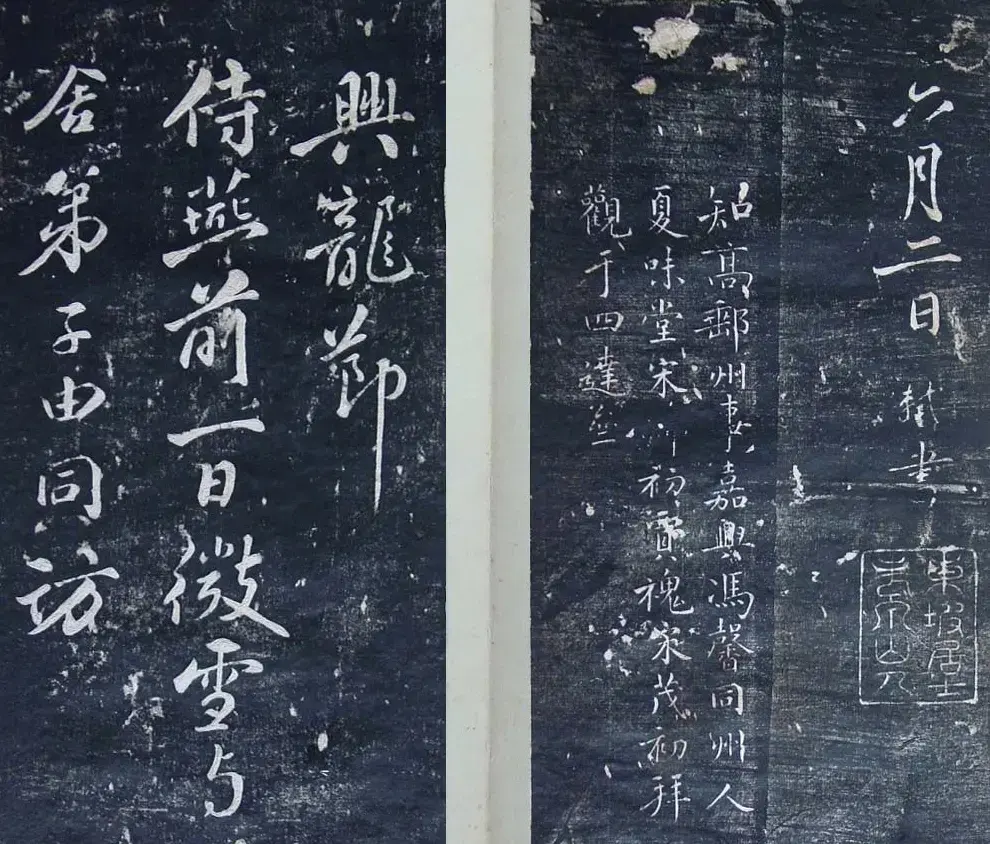 六月二日軾書
東坡居士
老泉山人
知高郵州事嘉興馮馨同州人
夏味堂宋初賈魂宋茂初拜
觀于四達
興龍節
侍燕前一日微雪与
舍弟子由同訪